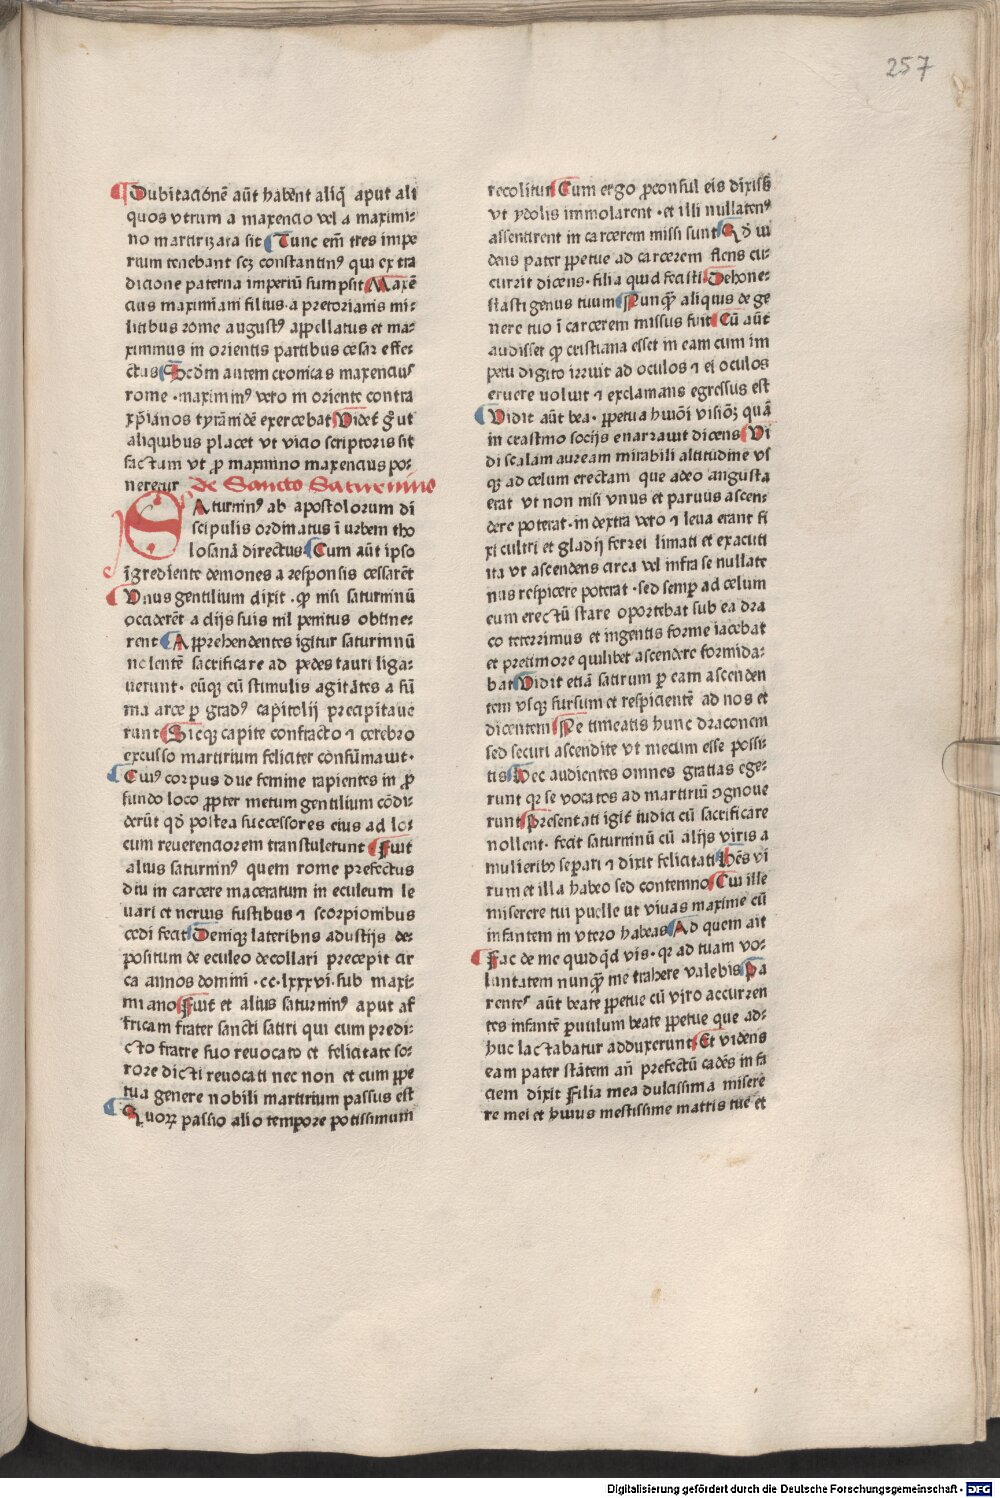 257
Dubitacionē aūt habent aliq̄ aput ali
quos vtrum a maxencio vel a maximi⸗
no martirizata sit Tunc em̄ tres impe
rium tenebant scꝫ constantinꝰ qui ex tra
dicione paterna imperiū sumpsit Maxē
cius maximiani filius·a pretorianis mi⸗
litibus rome augustꝰ appellatus et ma⸗
ximinus in orientis partibus cesar effe⸗
ctus Scd̄m autem cronicas maxencius
rome·maximinꝰ vero in oriente contra
xp̄ianos tyrāmdē exercebat Videt̄ gͦ ut
aliquibus placet vt vicio scriptoris sit
factum vt ꝓ maximino maxencius po⸗
neretur de Sancto Saturnino
SAturninꝰ ab apostolorum di
scipulis ordinatus ī urbem tho
losanā directus Cum aūt ipso
īgrediente demones a responsis cessarēt
Vnus gentilium dixit·ꝙ nisi saturninū
occiderēt a dijs suis nil penitus obtine⸗
rent Apprehendentes igitur saturninū
nolentē sacrificare ad pedes tauri liga⸗
uerunt·eūqꝫ cū stimulis agitātes a sū
ma arce ꝑ gradꝰ capitolij precipitaue
runt Sicqꝫ capite confracto ⁊ cerebro
excusso martirium feliciter consūmauit·
Cuiꝰ corpus due femine rapientes in ꝓ
fundo loco ꝓpter metum gentilium cōdi⸗
derūt qd̄ postea successores eius ad lo⸗
cum reuerenciorem transtulerunt Fuit
alius saturninꝰ quem rome prefectus
diu in carcere maceratum in eculeum le
uari et neruis fustibus ⁊ scorpionibus
cedi fecit Deniqꝫ lateribus adustijs de⸗
positum de eculeo decollari precepit cir
ca annos domini·cc·lxxxvi·sub maxi⸗
miano Fuit et alius saturninꝰ aput af
fricam frater sancti satiri qui cum predi⸗
cto fratre suo reuocato et felicitate so⸗
rore dicti reuocati nec non et cum ꝑpe
tua genere nobili martirium passus est
Quoꝝ passio alio tempore potissimum
recolitur Cum ergo ꝓconsul eis dixiss̄
vt ydolis immolarent·et illi nullatenꝰ
assentirent in carcerem missi sunt Qd̄ ui
dens pater ꝑpetue ad carcerem flens cu⸗
currit dicens·filia quid fecisti Dehone⸗
stasti genus tuum Nunq̄ aliquis de ge
nere tuo ī carcerem missus fuit Cū aūt
audisset ꝙ cristiana esset in eam cum im
petu digito irruit ad oculos ⁊ ei oculos
eruere uoluit ⁊ exclamans egressus est
Vidit aūt bea·ꝑpetua huiōi visiōꝫ quā
in crastino socijs enarrauit dicens Vi
di scalam auream mirabili altitudine vs
qꝫ ad celum erectam que adeo angusta
erat vt non nisi vnus et paruus ascen⸗
dere poterat·in dextra vero ⁊ leua erant fi
xi cultri et gladij ferrei limati et exacuti
ita vt ascendens circa vel infra se nullate
nus respicere poterat·sed semꝑ ad celum
eum erectū stare oportebat sub ea dra
co teterrimus et ingentis forme iacebat
et pretimore quilibet ascendere formida⸗
bat Vidit etiā satirum ꝑ eam ascenden
tem vsqꝫ sursum et respicientē ad nos et
dicentem Ne timeatis hunc draconem
sed securi ascendite vt mecum esse possi⸗
tis Hec audientes omnes gratias ege⸗
runt qꝛ se vocatos ad martiriū ↄgnoue
runt Presentati igit̄ iudici cū sacrificare
nollent·fecit saturninū cū alijs viris a
mulieribꝫ separi ⁊ dixit felicitati Hēs vi
rum et illa habeo sed contemno Cui ille
miserere tui puelle ut viuas maxime cū
infantem in vtero habeas Ad quem ait
Fac de me quidqͥd vis·qꝛ ad tuam vo⸗
luntatem nunq̄ me trahere valebis Pa
rentes aūt beate ꝑpetue cū viro accurren
tes infantē paruulum beate ꝑpetue que ad⸗
huc lactabatur adduxerunt Et videns
eam pater stātem an̄ prefectū cadēs in fa
ciem dixit Filia mea dulcissima misere
re mei et huius mestissime matris tue et
Digitalisierung gefördert durch die Deutsche Forschungsgemeinschaft - DFG